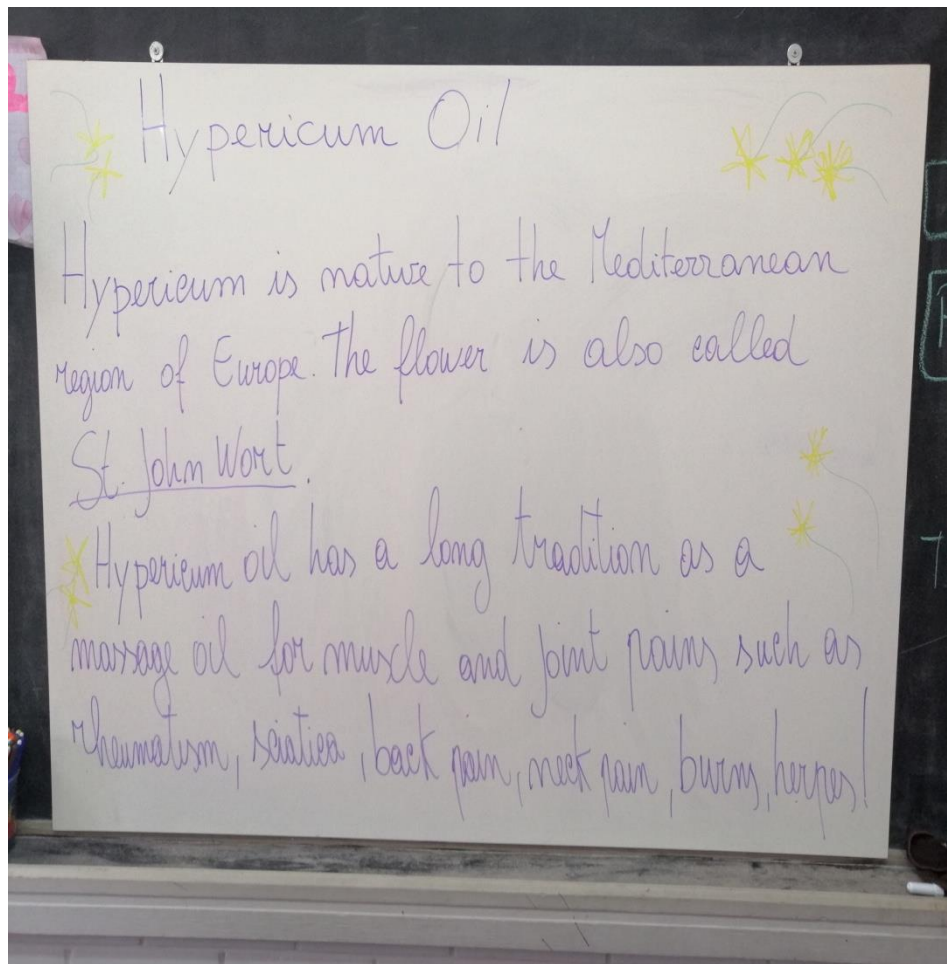 Hypericum Oil
Hypericum is native to the Mediterranean
region of Europe. The flower is also called
St. John Wort.
Hypericum oil has a long tradition as a
massage oil for muscle and joint pains such as
rheumatism, sciatica, back pain, neck pain, burns, herpes!